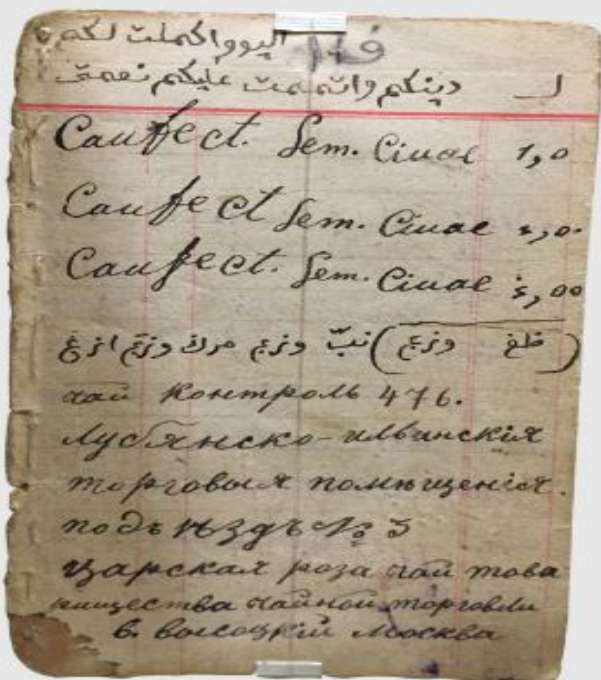 اليوو اكملت لكم
دينكم واتممت عليكم نعمتى
Caufect. Sem. Cinae 1,0
Caufect Sem. Cinae
Caufect. Sem. Cinae
чай контроль 476.
Лубянско-ильинскія
торговыя помѣщенія.
подъѣздъ № 3
царская роза чай това
рищества чайной торговли
В. Высоцкій Москва